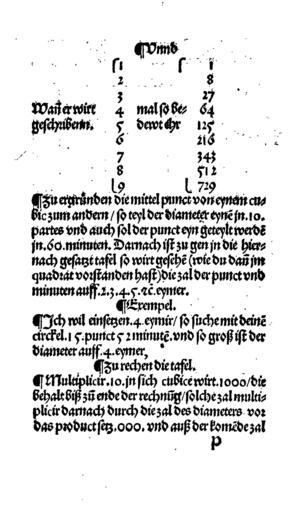 ¶Vnnd
1 1
2 8
3 27
Wañ er wirt 4 mal so be- 64
geschribenn. 5 dewt Ehr 125
6 216
7 343
8 512
9 729
¶Zu ergründen die mittel punct von eynem cu-
bic zum andern / so teyl der diameter eynē jn .10.
partes vnd auch sol der punct eyn geteylt werdē
jn .60. minuten. Darnach ist zu gen in die hier-
nach gesatzt tafel so wirt gesehē (wie du dañ jm
quadrat vorstanden hast) die zal der punct vnd
minuten auff .2.3.4.5.ꝛc. eymer.
¶Exempel.
¶Ich wil einsetzen .4. eymir / so suche mit deinē
circkel .15. punct 52 minutē. vnd so groß ist der
diameter auff .4. eymer,
¶Zu rechen die tafel.
¶Multiplicir .10. jn sich cubice wirt .1000 / die
behalt biß zū ende der rechnūg / solche zal multi-
plicir darnach durch die zal des diameters vor
das product setz .000. vnd auß der komēde zal
p